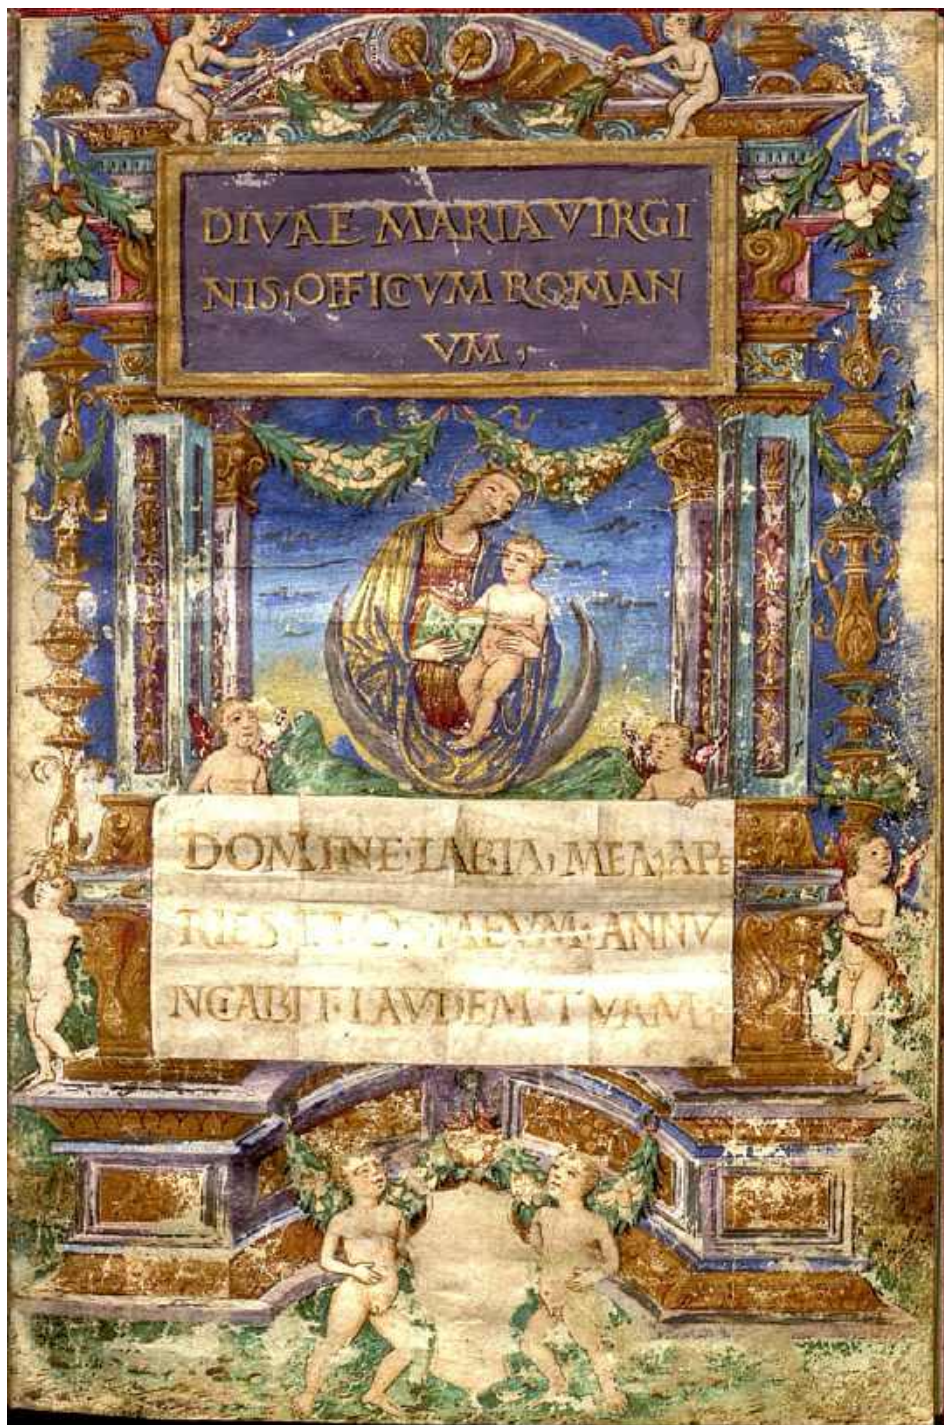 DIVAE MARIA VIRGI
NIS, OFFICVM ROMAN
VM,
DOMINE · LABIA, MEA, APE
RIES ANNV
NCABIT · LAVDEM TVAM ·